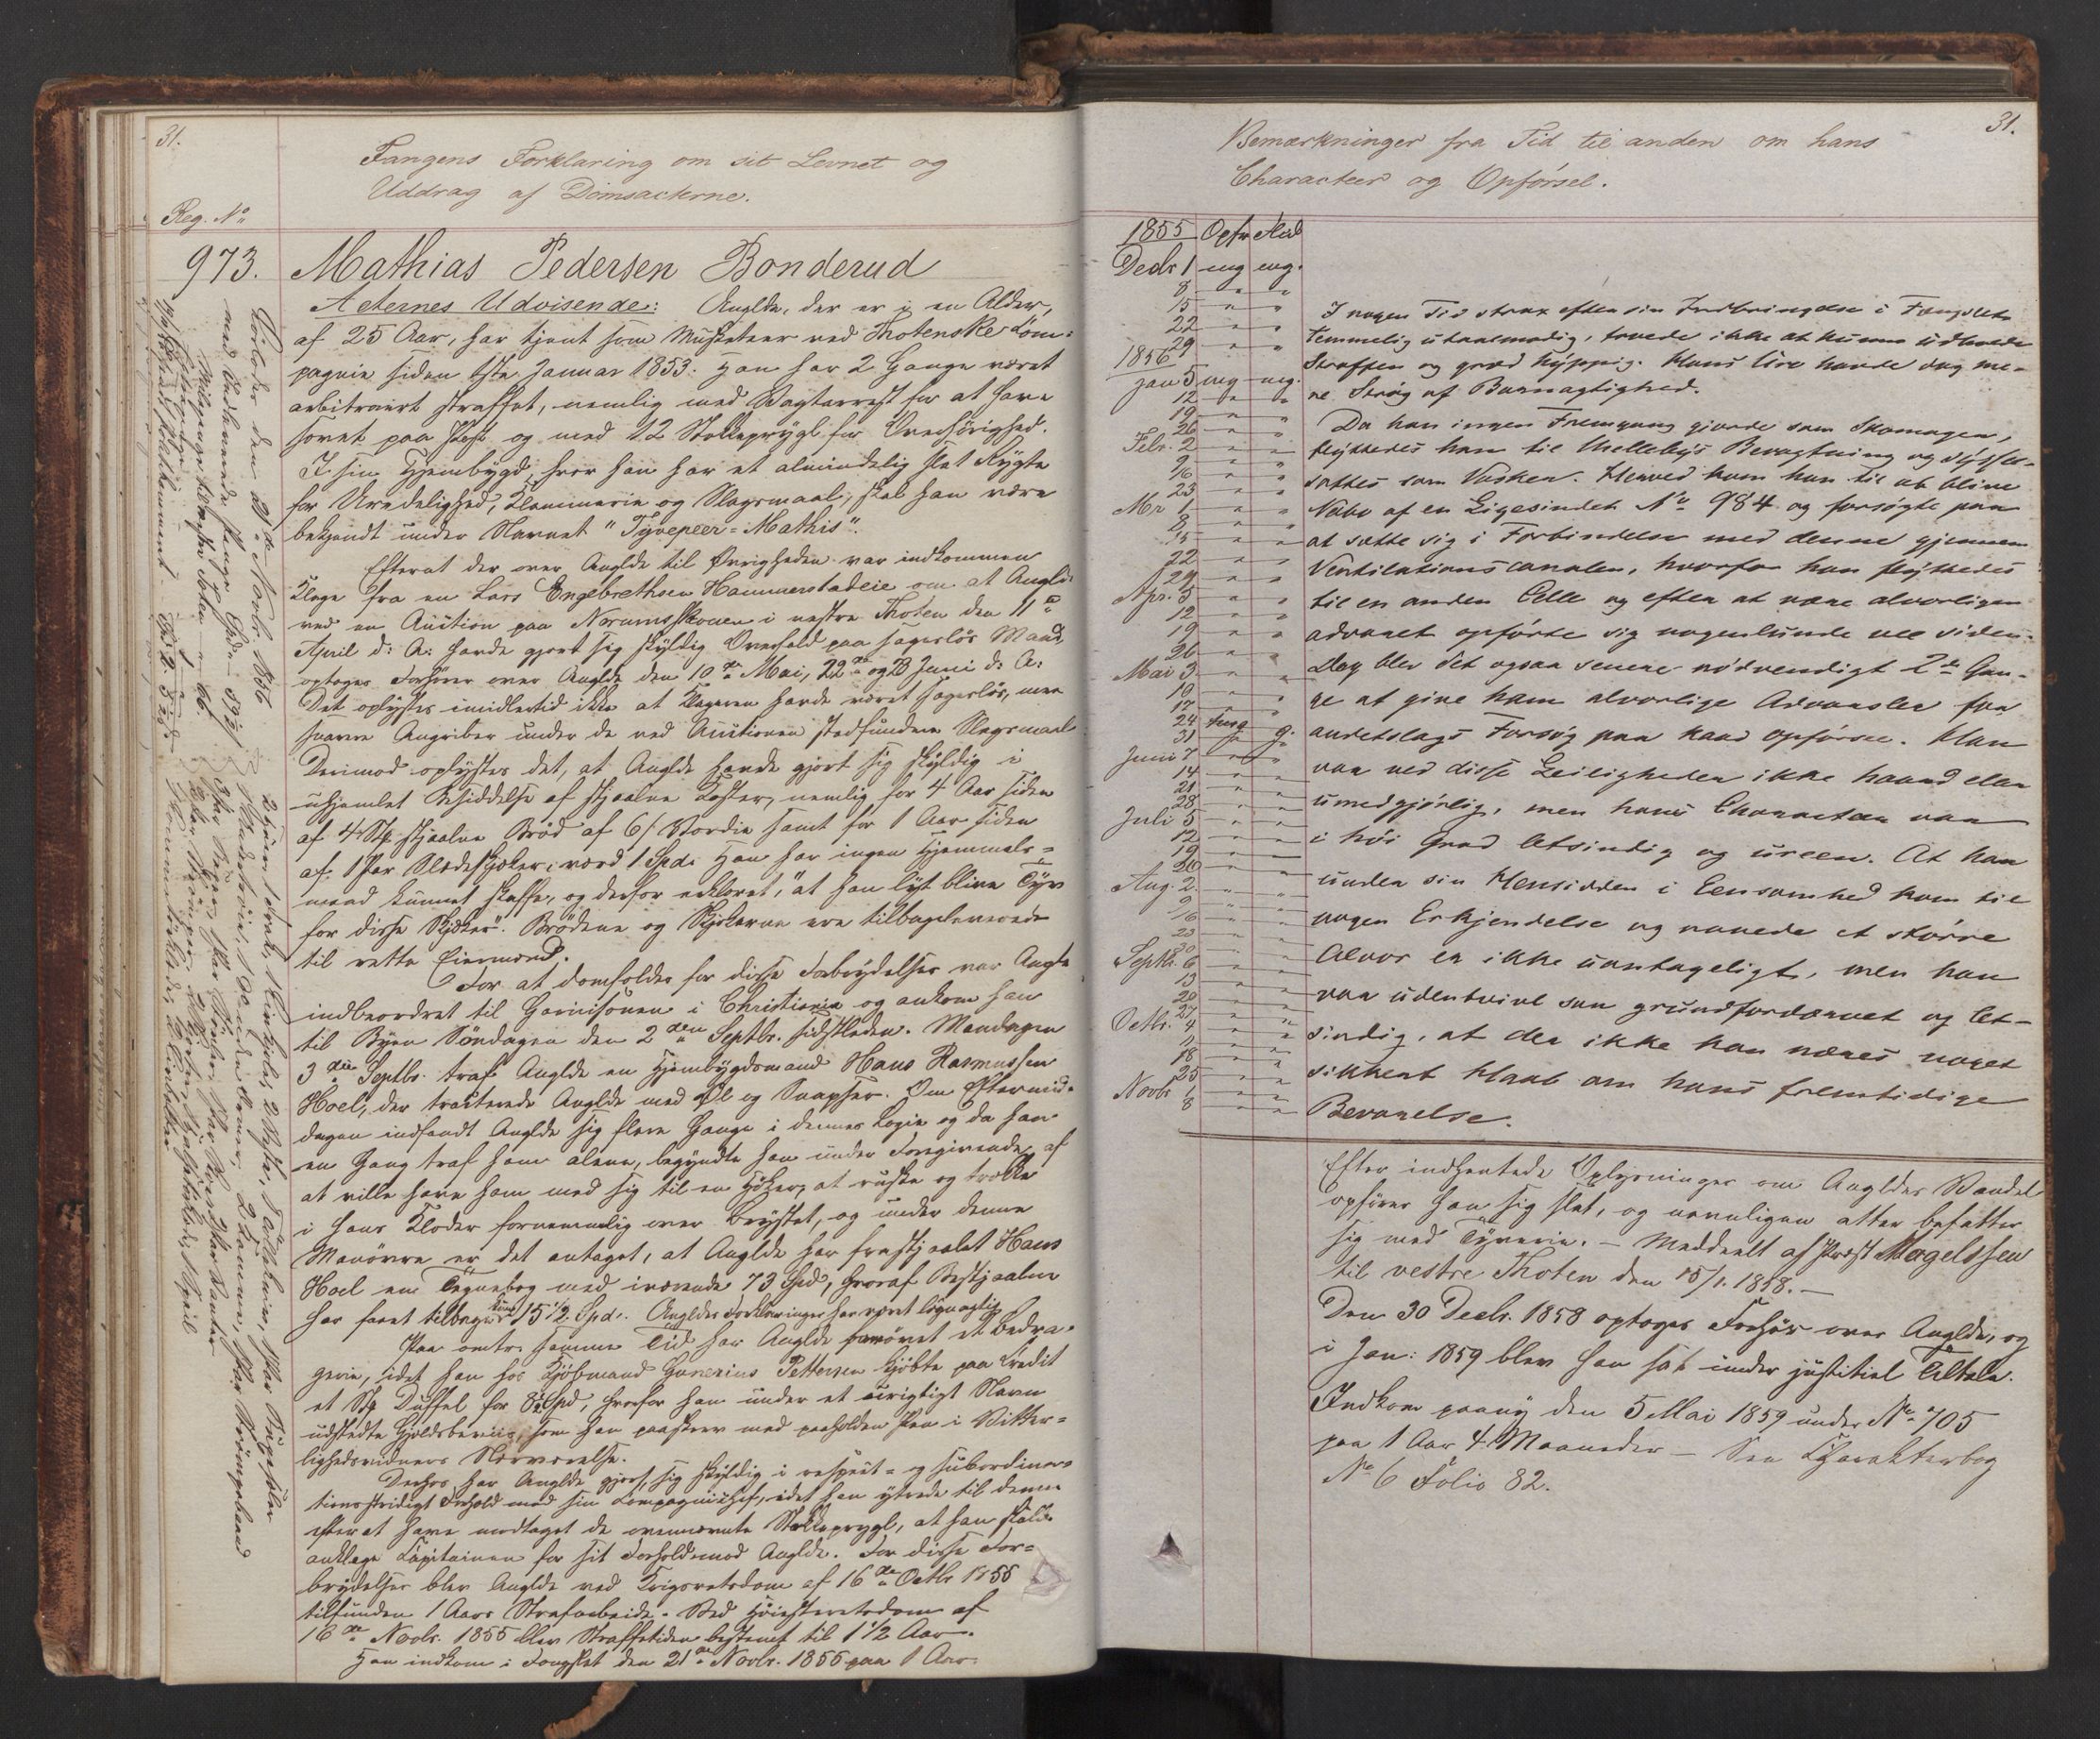 31.
Fangens Forklaring om sit Levnet og
Uddrag af Domsacterne.
Reg. No
973. Mathias Pedersen Bonderud
Acternes Udvisende: Anglde, der er i en Alder,
af 25 Aar, har tjent som Musketeer ved Thotenske Com-
pagnie siden 1ste Januar 1853. Han har 2 Gange været
arbitrairt straffet, nemlig med Vagtarrest for at have
sovet paa Post og med 12 Stokkeprygl for Overhørighed.
I sin Hjembygd, hvor han har et almindelig slet Rygte
for Uredelighed, Klammerie og Slagsmaal, skal han være
bekjendt under Navnet "Tyvepeer-Mathis".
Efterat der over Anglde til Øvrigheden var indkommen
Klage fra en Lars Engebrethsen Hammerstadeie om at Anglde
ved en Auction paa Norumsskoven i vestre Thoten den 11te
April d: A: havde gjort sig skyldig Overfald paa sagesløs Mand,
optoges Forhører over Anglde den 10de Mai, 22de og 28 Juni d: A:
Det oplystes imidlertid ikke at Klageren havde været sagesløs, men
snarere Angriber under de ved Auctionen stedfundne Slagsmaal
Derimod oplystes det, at Anglde havde gjort sig skyldig i
uhjemlet Besiddelse af stjaalne Koster, nemlig for 4 Aar siden
af 4 Stk stjaalne Brød af 6 s Værdie samt for 1 Aar siden
af 1 Par Slædeskjæker, værd 1 Spd. Han har ingen Hjemmels-
mand kunnet skaffe, og derfor erklæret, "at han lyst blive Tyv
for disse Skjæker". Brødene og Skjækerne ere tilbageleverede
til rette Eiermænd.
For at domfældes for disse Forbrydelser var Anglde
indbeordret til Garnisonen i Christiania og ankom han
til Byen Søndagen den 2den Septbr. sidstleden. Mandagen
3die Septbr. traf Anglde en Hjembygdsmand Hans Rasmussen
Hoel, der tracterede Anglde med Øl og Snapser. Om Eftermid-
dagen indfandt Anglde sig flere Gange i dennes Logie og da han
en Gang traf ham alene, begyndte han under Foregivende af
at ville have ham med sig til en Høker, at ruske og trække
i hans Klæder fornemmelig over Brystet, og under denne
Manøvre er det antaget, at Anglde har frastjaalet Hans
Hoel en Tegnebog med iværende 73 Spd, hvoraf Bestjaalne
har faaet tilbage kuns 15 1/2 Spd. Angldes Forklaringer har været løgnagtig
Paa omtr. samme Tid har Anglde forøvet et Bedra-
gerie, idet han hos Kjøbmand Gunerius Pettersen kjøbte paa Credit
et Stk Duffel for 8 1/2 Spd, hvorfor han under et urigtigt Navn
udstedte Gjældsbeviis, som han paaskrev med paaholden Pen i Vitter-
lighedsvidners Nærværelse.
Derhos har Anglde gjort sig skyldig i respect- og subordina-
tionsstridigt Forhold mod sin Compagniechef, idet han ytrede til denne
efterat have modtaget de ovennævnte Stokkeprygl, at han skulde
anklage Capitainen for sit Forhold mod Anglde. For disse For-
brydelser blev Anglde ved Krigsretsdom af 16de Octbr 1855
tilfunden 1 Aars Strafarbeide. Ved Høiesteretsdom af
16de Novbr. 1855 blev Straffetiden bestemt til 1 1/2 Aar.
Han indkom i Fængslet den 21de Novbr. 1855 paa 1 Aar.
Bemærkninger fra Tid til anden om hans
Characteer og Opførsel.
31.
1855 Opfør Flid
Decbr 1 mg mg.
8 " "
15 " "
22 " "
29 " "
1856
Jan 5 mg mg.
12 " "
19 " "
26 " "
Febr. 2 " "
9 " "
16 " "
23 " "
Mr 1 " "
8 " "
15 " "
22 " "
29 " "
Apr. 5 " "
12 " "
19 " "
26 " "
Mai 3 " "
10 " "
17 " "
24
31 g g.
Juni 7 " "
14 " "
21 " "
28 " "
Juli 5 " "
12 " "
19 " "
26 " "
Aug. 2 " "
9 " "
16 " "
23 " "
30 " "
Septbr. 6 " "
13 " "
20 " "
27 " "
Octbr. 4 " "
11 " "
18 " "
25 " "
Novbr 1 " "
8 " "
I nogen Tid strax efter sin Indbringelse i Fængslet
temmelig utaalmodig, troede ikke at kunne udholde
Straffen og græd hyppig. Hans Uro havde dog me-
re Strøg af Barnagtighed.
Da han ingen Fremgang gjorde som Skomager,
flyttedes han til Mellebys Bevogtning og syssel-
sattes som Vasker. Herved kom han til at blive
Nabo af en Ligesindet No 984 og forsøgte paa
at sætte sig i Forbindelse med denne gjennem
Ventilationscanalen, hvorfor han flyttedes
til en anden Celle og efter at være alvorligen
advaret opførte sig nogenlunde vel siden.
Dog blev det ogsaa senere nødvendigt 2de Gan-
ge at give ham alvorlige Advarsler for
andetslags Forsøg paa kaad Opførsel. Han
var ved disse Leiligheder ikke haard eller
umedgjørlig, men hans Character var
i høi Grad letsindig og ureen. At han
under sin Hensidden i Eensomhed kom til
nogen Erkjendelse og vannede et større
Alvor er ikke uantageligt, men han
var udentvivl saa grundfordærvet og let-
sindig, at der ikke kan næres noget
sikkert Haab om hans fremtidige
Bevarelse.
Efter indhentede Oplysninger om Angldes Vandel
opfører han sig slet, og navnligen atter befatter
sig med Tyverie. – Meddeelt af Præst Magelssen
til vestre Thoten den 15/1. 1858. –
Den 30 Decbr. 1858 optoges Forhør over Anglde, og
i Jan: 1859 blev han sat under justitiel Tiltale.
Indkom paany den 5 Mai 1859 under No 705
paa 1 Aar 4 Maaneder – See Charakterbog
No 6 Folio 82.